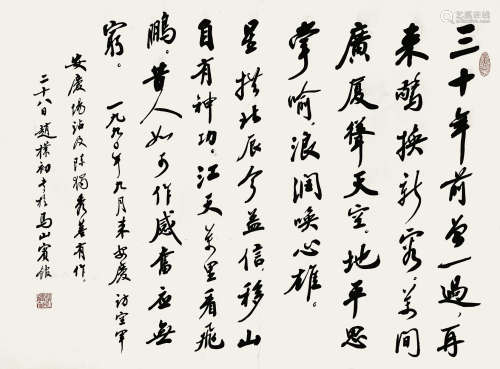 三十年前曾一過,再
来驚換新容。萬間
廣厦聳天空。地平思
掌喻,浪闊喚心雄。
星拱北辰今益信,移山
自有神功。江天萬里看飛
鵬。昔人如可作感奮應無
窮。一九九〇年九月来安慶訪空軍
安慶場站及陳獨秀墓有作,
二十八日趙樸初書於馬山賓館
艺狐在线